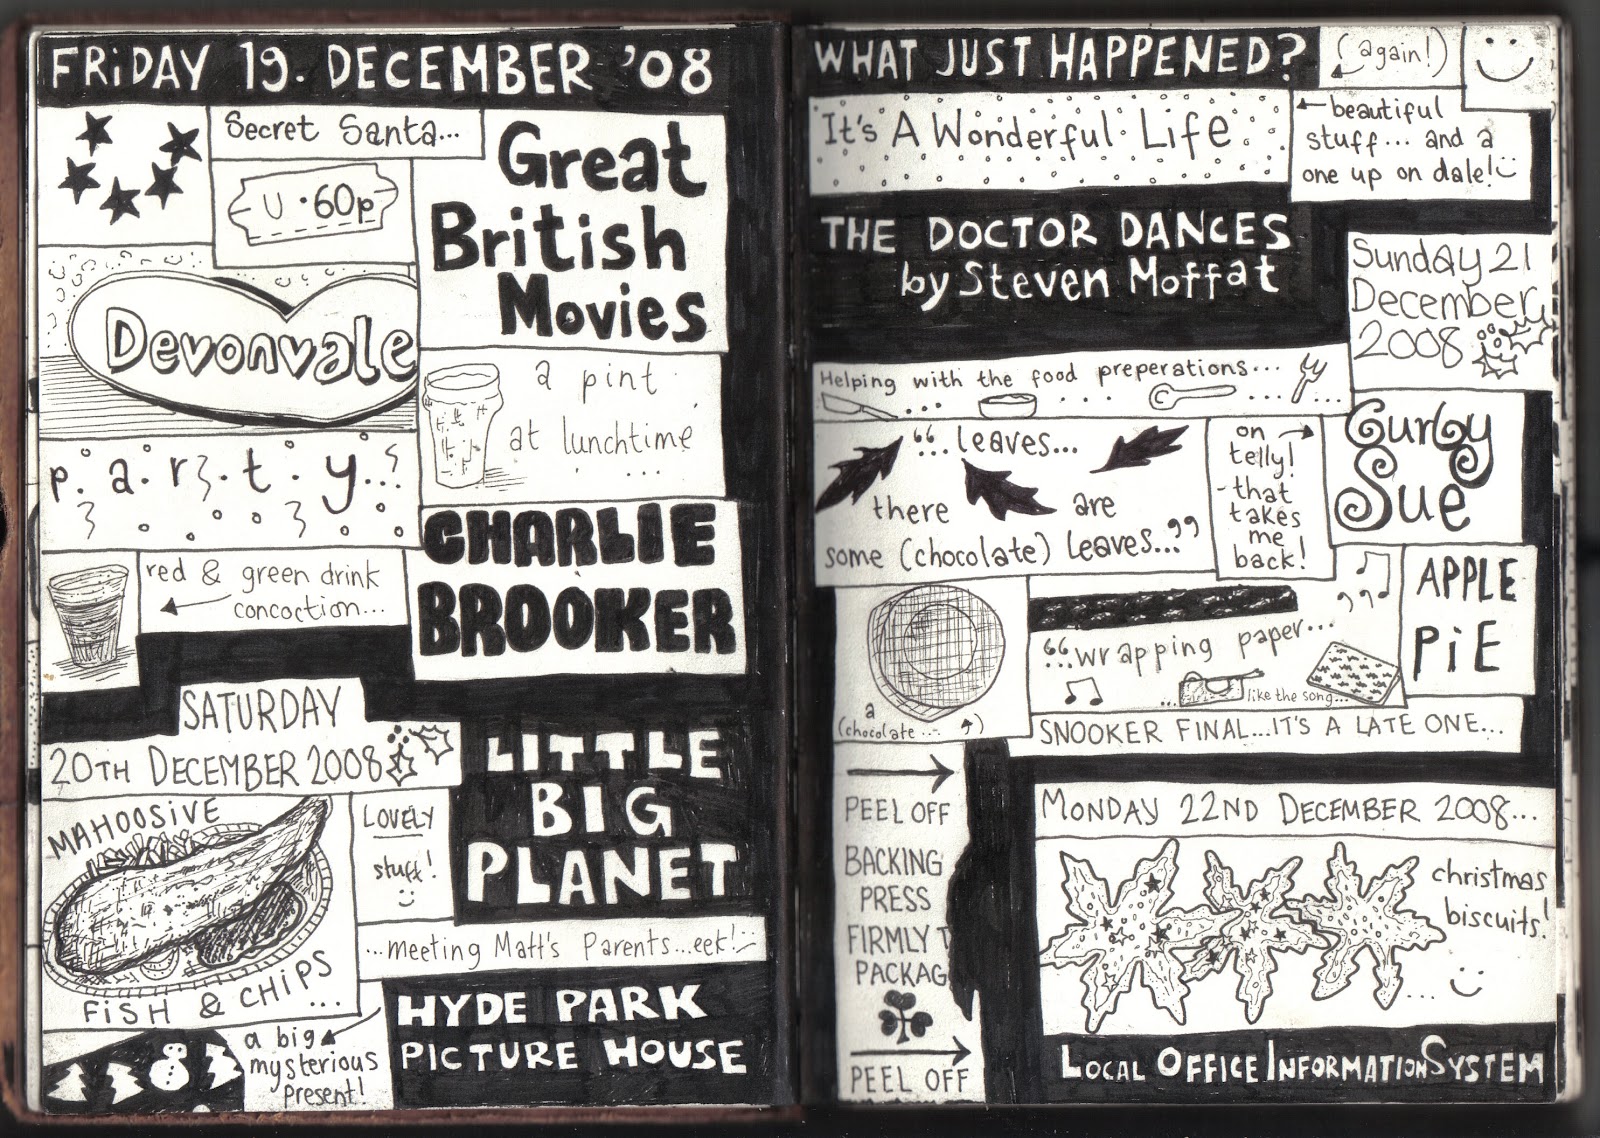 FRiDAY 19. DECEMBER '08
Secret Santa...
U · 60p
Great
British
Movies
Devonvale
a pint
at lunchtime
...
p.a.r.t.y...
CHARLIE
BROOKER
red & green drink
concoction...
SATURDAY
20TH DECEMBER 2008
LITTLE
BIG
PLANET
MAHOOSIVE
FiSH & CHiPS
...
LOVELY
stuff!
...meeting Matt's Parents...eek!
HYDE PARK
PICTURE HOUSE
a big
mysterious
present!
WHAT JUST HAPPENED?
(again!)
It's A Wonderful Life
beautiful
stuff... and a
one up on dale!
THE DOCTOR DANCES
by Steven Moffat
Sunday 21
December
2008
Helping with the food preperations...
“...leaves...
there are
some (chocolate) leaves...”
on
telly!
that
takes
me
back!
Curly
Sue
a
(chocolate ... )
“...wrapping paper...”
...like the song...
APPLE
PiE
SNOOKER FINAL...IT'S A LATE ONE...
PEEL OFF
BACKING
PRESS
FIRMLY T
PACKAG
PEEL OFF
MONDAY 22ND DECEMBER 2008...
christmas
biscuits!
...
LOCAL OFFICE INFORMATION SYSTEM